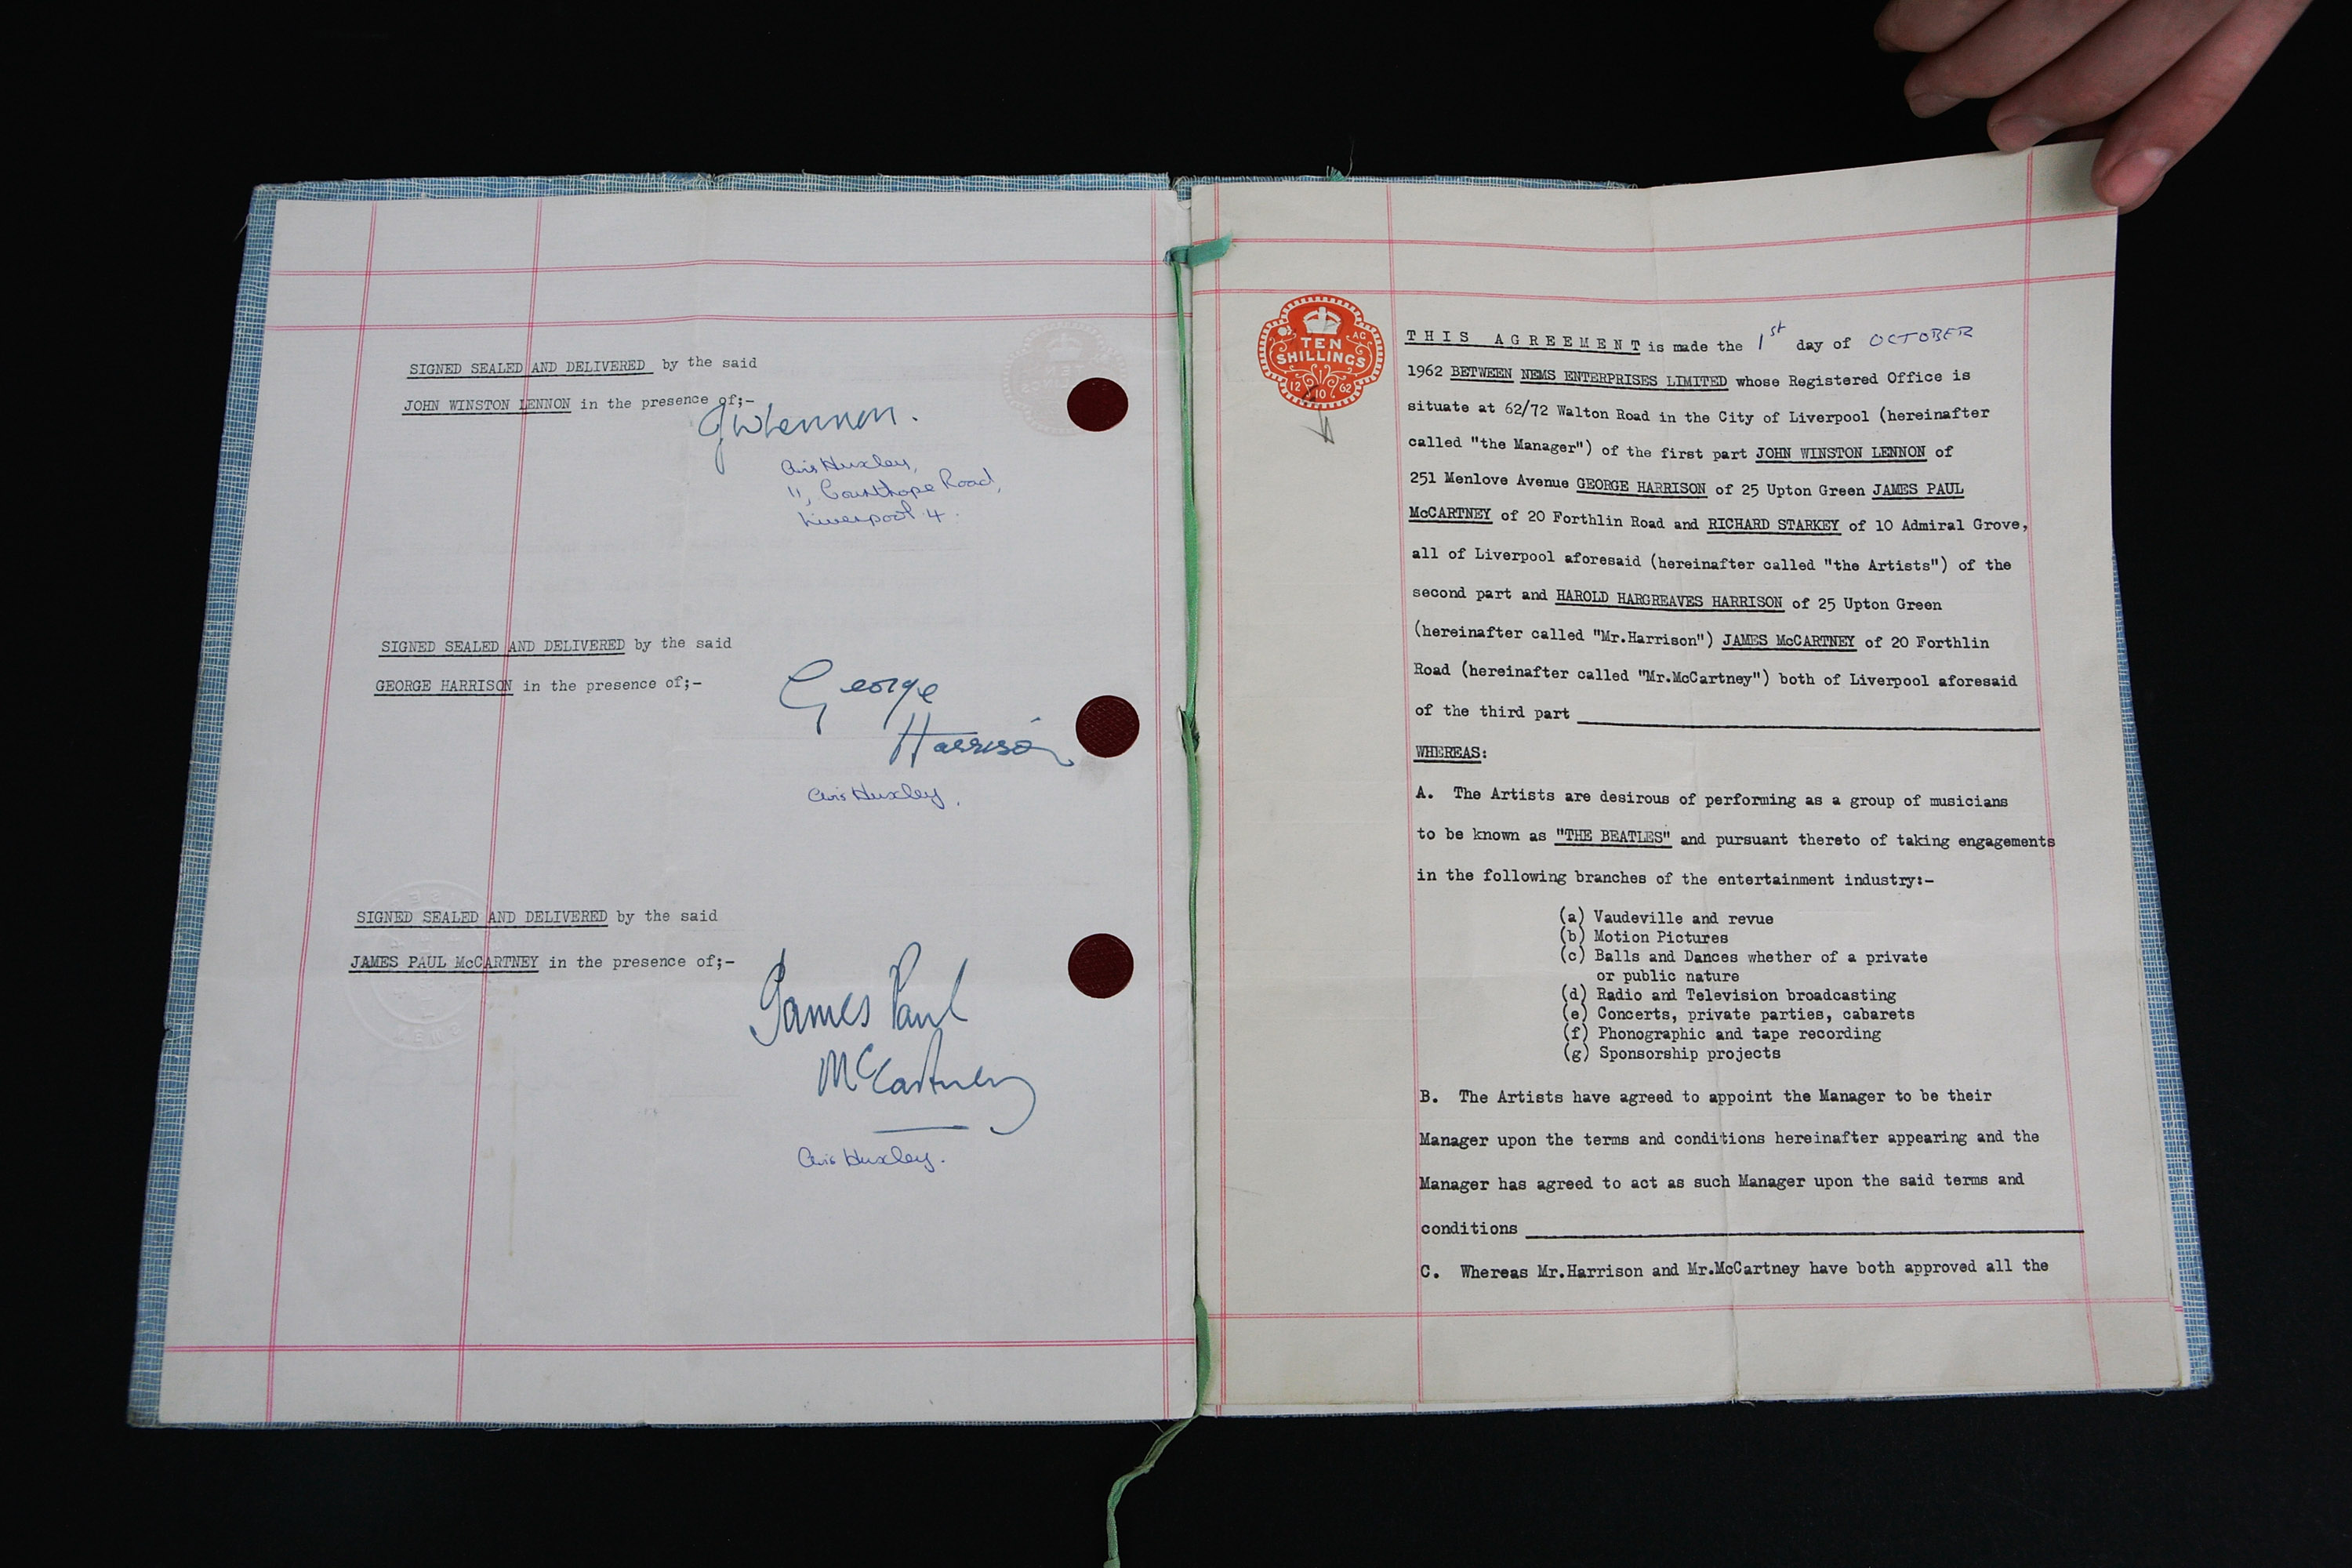 SIGNED SEALED AND DELIVERED by the said
JOHN WINSTON LENNON in the presence of;-
JWLennon.
Avis Huxley,
11, Courthope Road,
Liverpool 4.
SIGNED SEALED AND DELIVERED by the said
GEORGE HARRISON in the presence of;-
George
Harrison
Avis Huxley.
SIGNED SEALED AND DELIVERED by the said
JAMES PAUL McCARTNEY in the presence of;-
James Paul
McCartney
Avis Huxley.
TEN
SHILLINGS
AC
12 62
10
THIS AGREEMENT is made the 1st day of OCTOBER
1962 BETWEEN NEMS ENTERPRISES LIMITED whose Registered Office is
situate at 62/72 Walton Road in the City of Liverpool (hereinafter
called "the Manager") of the first part JOHN WINSTON LENNON of
251 Menlove Avenue GEORGE HARRISON of 25 Upton Green JAMES PAUL
McCARTNEY of 20 Forthlin Road and RICHARD STARKEY of 10 Admiral Grove,
all of Liverpool aforesaid (hereinafter called "the Artists") of the
second part and HAROLD HARGREAVES HARRISON of 25 Upton Green
(hereinafter called "Mr.Harrison") JAMES McCARTNEY of 20 Forthlin
Road (hereinafter called "Mr.McCartney") both of Liverpool aforesaid
of the third part
WHEREAS:
A. The Artists are desirous of performing as a group of musicians
to be known as "THE BEATLES" and pursuant thereto of taking engagements
in the following branches of the entertainment industry:-
(a) Vaudeville and revue
(b) Motion Pictures
(c) Balls and Dances whether of a private
or public nature
(d) Radio and Television broadcasting
(e) Concerts, private parties, cabarets
(f) Phonographic and tape recording
(g) Sponsorship projects
B. The Artists have agreed to appoint the Manager to be their
Manager upon the terms and conditions hereinafter appearing and the
Manager has agreed to act as such Manager upon the said terms and
conditions
C. Whereas Mr.Harrison and Mr.McCartney have both approved all the